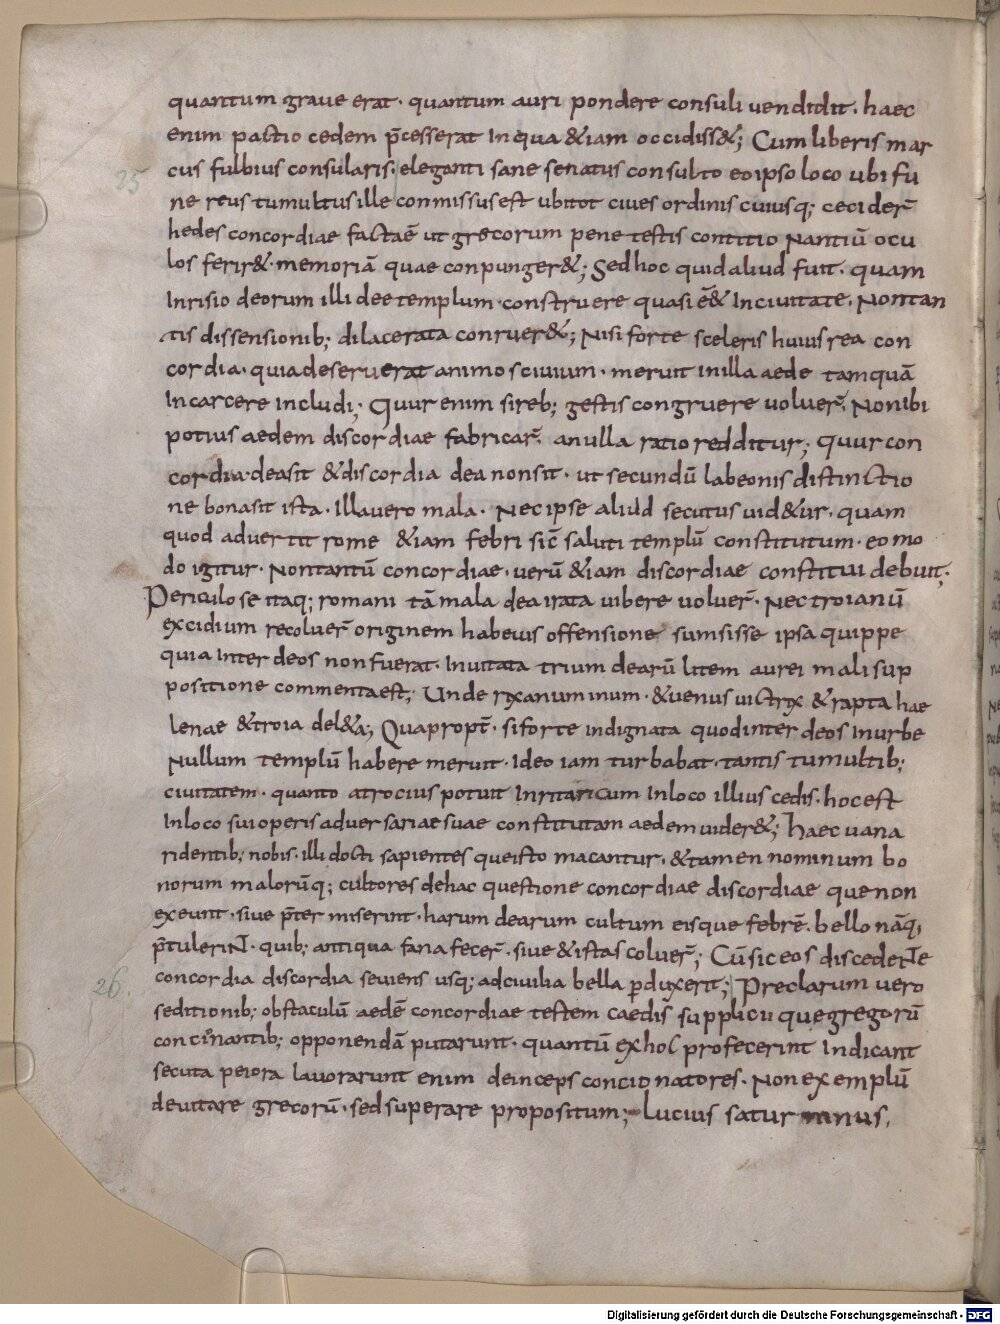 quantum graue erat· quantum auri pondere consuli uendidit· haec
enim pactio cedem p̄cesserat In qua &iam occidiss&; Cum liberis mar
cus fulbius consularis· eleganti sane senatus consulto eo ipso loco ubi fu
25 ne reus tumultus ille conmissus est ubi tot ciues ordinis cuiusq; cecider̄
hedes concordiae factaē ut grecorum pene testis contitio Nantiū ocu
los ferir&· memoriā quae conpunger&; Sed hoc quid aliud fuit· quam
Inrisio deorum illi dee templum· construere quasi ē& In ciuitate· Non tan
tis dissensionib; dilacerata conruer&; Nisi forte sceleris huius rea con
cordia· quia deseruerat animos ciuium· meruit in illa aede tamquā
In carcere includi; Quur enim si reb; gestis congruere uoluer̄· Non ibi
potius aedem discordiae fabricar̄· an ulla ratio redditur; quur con
cordia· dea sit & discordia dea non sit· ut secundū labeonis distinctio
ne bona sit ista· Illa uero mala· Nec ipse aliud secutus uid&ur· quam
quod aduertit rome &iam febri sic̄ saluti templū constitutum· eo mo
do igitur· Non tantū concordiae· uerū &iam discordiae constitui debuit;
Periculose itaq; romani tā mala dea irata uibere uoluer̄· Nec troianū
excidium recoluer̄ originem habeuis offensione sumsisse ipsa quippe
quia Inter deos non fuerat· Inuitata trium dearū litem aurei mali sup
positione commenta est; Unde rixa numinum· & uenus uictrix & rapta hae
lenae & troia del&a; Quapropt̄· si forte indignata quod inter deos In urbe
Nullum templū habere meruit· Ideo iam turbabat· tantis tumultib;
ciuitatem· quanto atrocius potuit Inritari cum In loco illius cedis· hoc est
In loco sui operis aduersariae suae constitutam aedem uider&; haec uana
ridentib; nobis· illi docti sapientes que isto macantur· & tamen nominum bo
norum malorūq; cultores de hac questione concordiae discordiae que non
exeunt· siue p̄termiserint· harum dearum cultum eisque febrē· bellonāq;
p̄tulerint· quib; antiqua fana fecer̄· siue & istas coluer̄; Cū sic eos discedente
26. concordia discordia seuiens usq; ad ciuilia bella ꝑduxerit; Preclarum uero
seditionib; obstaculū aedē concordiae testem caedis supplicii que gregorū
concinantib; opponendā putarunt· quantū ex hoc profecerint Indicant
secuta peiora lauorarunt enim deinceps concionatores· Non exemplū
deuitare grecorū· sed superare propositum; Lucius saturninus·
Digitalisierung gefördert durch die Deutsche Forschungsgemeinschaft - DFG